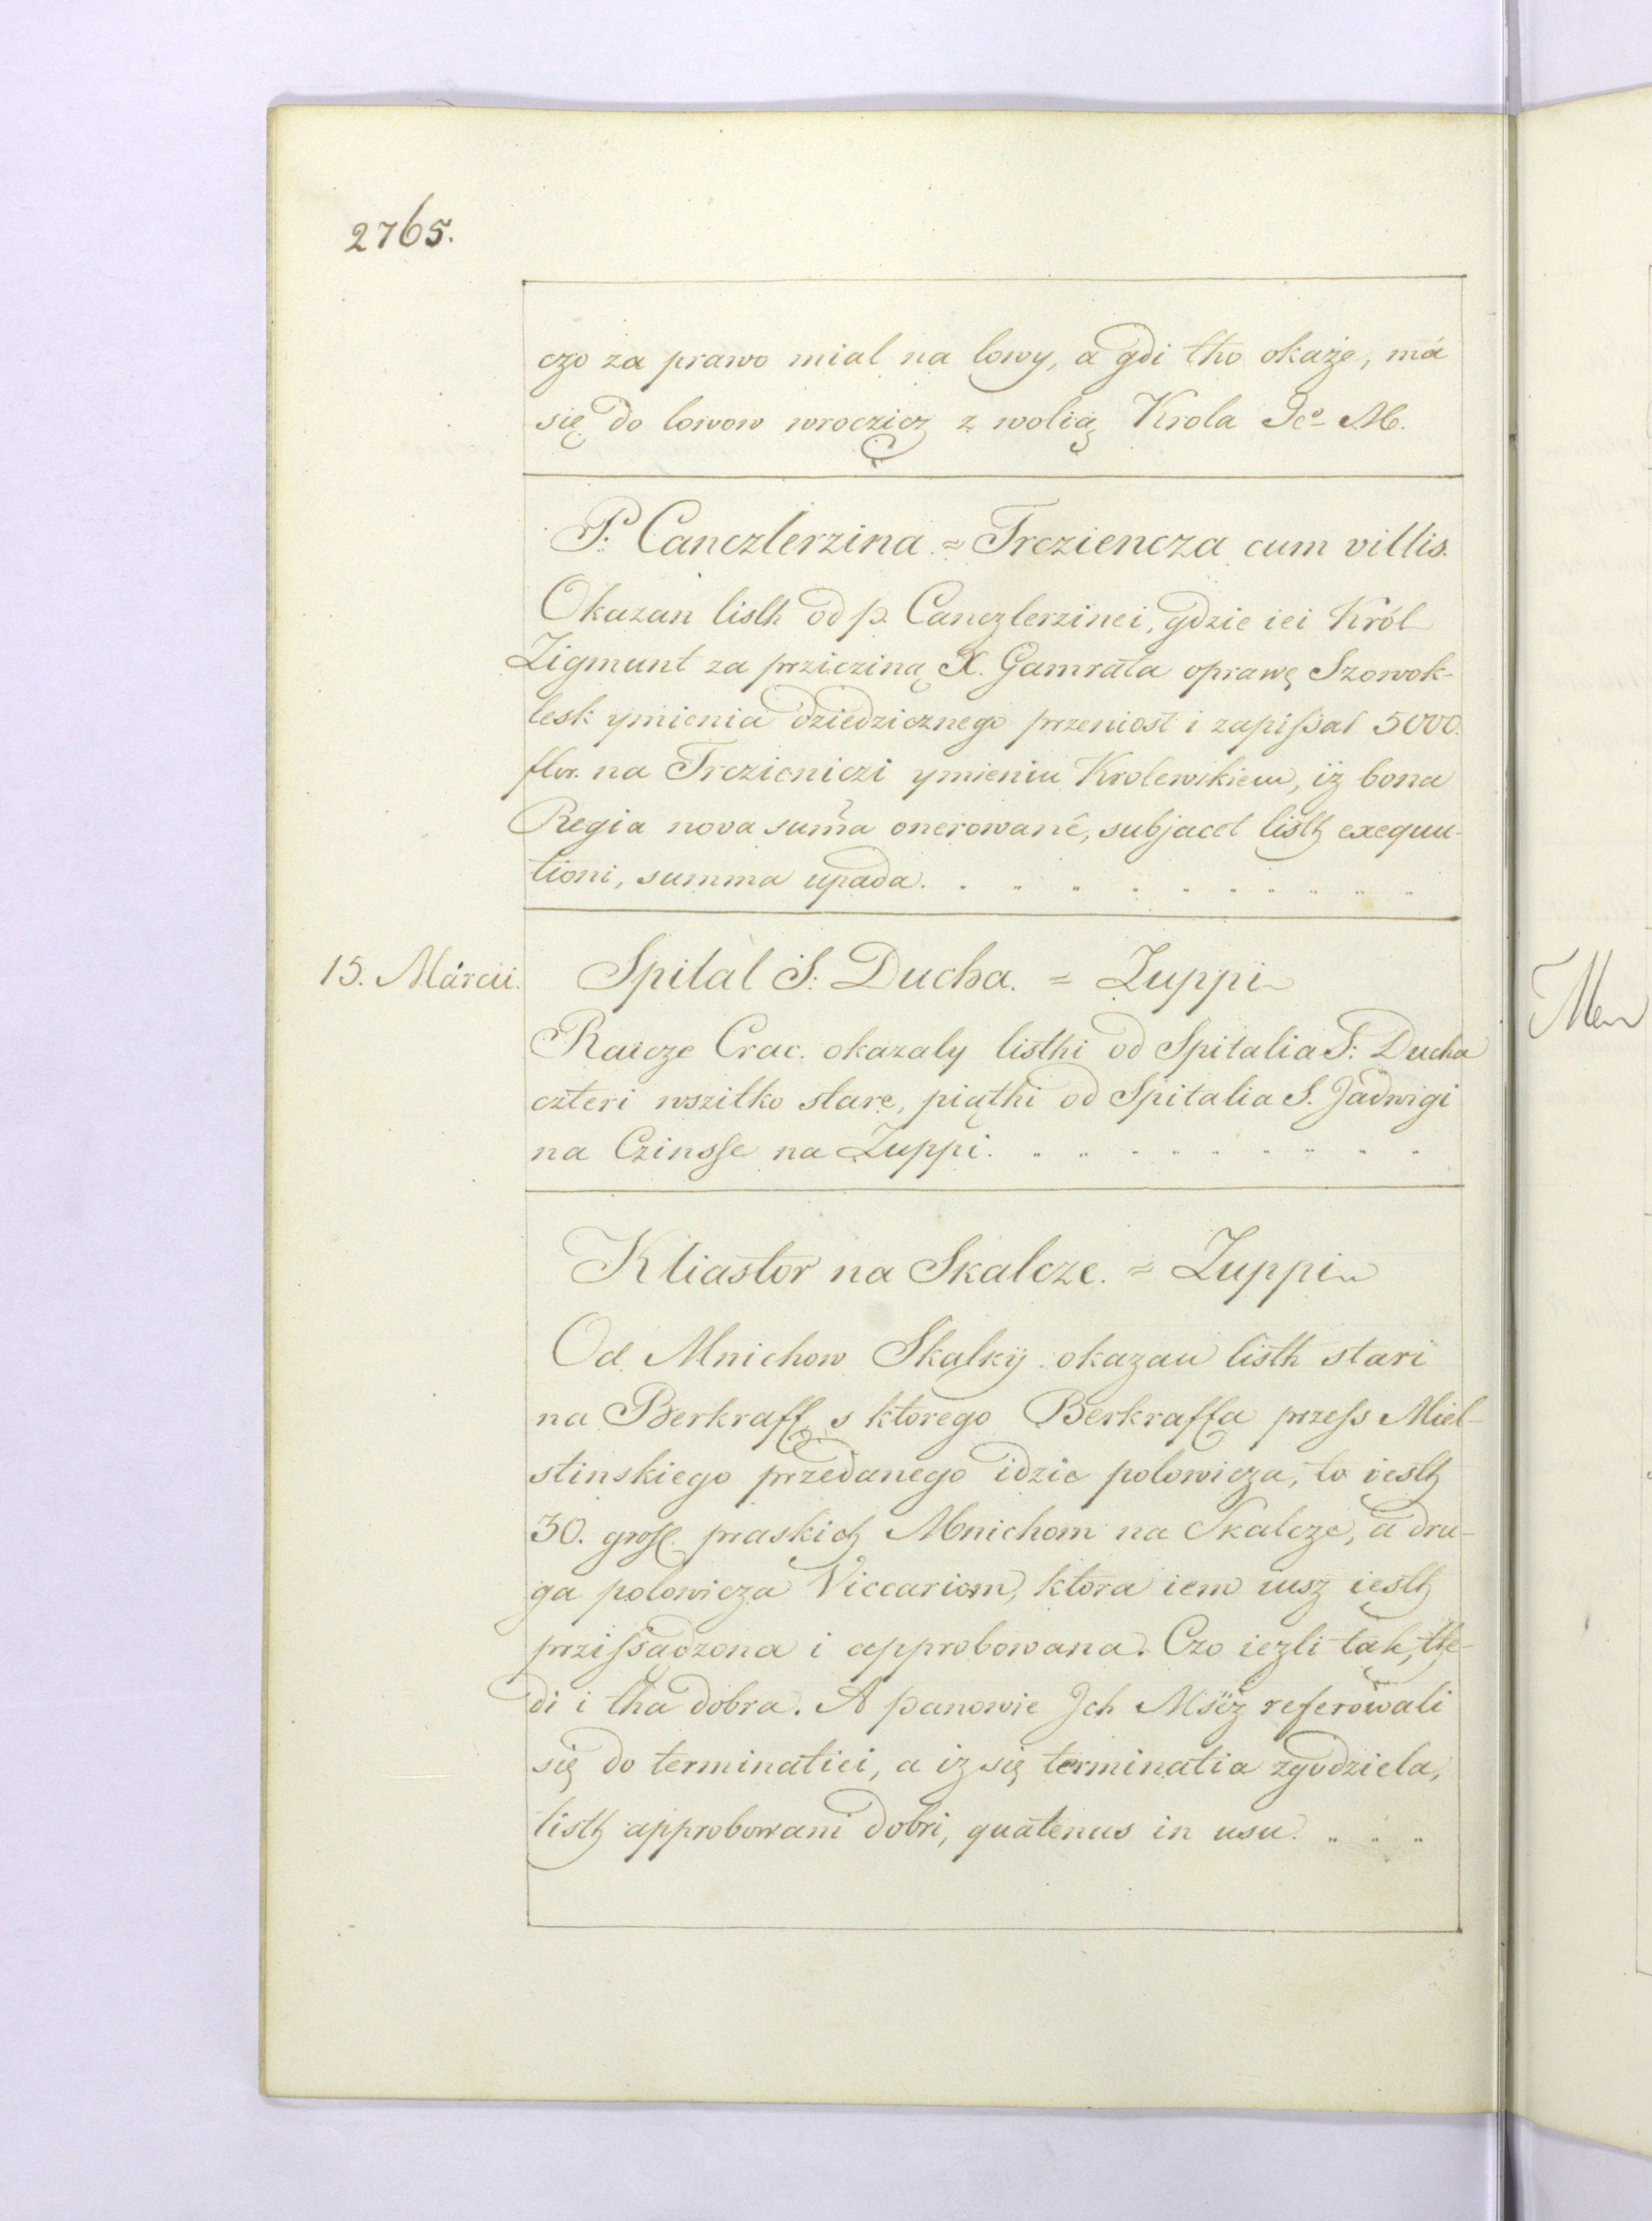 2765.
czo za prawo mial na lowy, a gdi tho okaże, má
się do lowow wroczicz z wolią Krola Jeº M.
P: Canczlerzina = Trcziencza cum villis.
Okazan listh od p. Canczlerzinei, gdzie iei Król
Zigmunt za przicziną X. Gamrata oprawę Szowok-
lesk ymienia dziedzicznego przeniosł i zapissał 5000.
flor. na Trczieniczi ymieniu Krolewskiem, iż bona
Regia nova suma onerowanė, subjacet listh exequu-
tioni, summa upada.
15. Marcii.
Spital S: Ducha. = Zuppi
Raicze Crac. okazaly listhi od Spitalia S: Ducha
czteri wszitko stare, piąthi od Spitalia S. Jadwigi
na Czinsse na Zuppi.
Kliastor na Skalcze. = Zuppi
Od Mnichow Skalky okazan listh stari
na Berkraff, s ktorego Berkraffa przess Miel-
stinskiego przedanego idzie polowicza, to iesth
30. gross. praskich Mnichom na Skalcze, a dru-
ga polowicza Viccariom, ktora iem iusz iesth
przissadzona i approbowana. Czo iezli tak, the-
di i tha dobra. A panowie Ich Mscz referowali
się do terminatiei, a iz się terminatia zgodziela,
listh approbowani dobri, quatenus in usu.